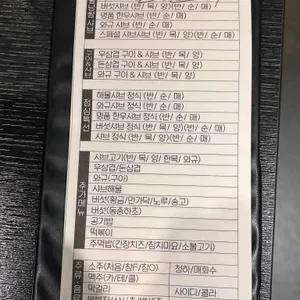 버섯샤브 (반/ 목/ 매)
명품 한우샤브 (반/ 순/ 매)
와규 샤브 (반/ 순/ 매)
스페셜 샤브 (반/ 순/ 매)
구이&샤브
우삼겹 구이 & 샤브 (반/ 목/ 양)
돈삼겹 구이 & 샤브 (반/ 목/ 양)
와규 구이 & 샤브 (반/ 목/ 양)
점심특선
해물샤브 정식 (반/ 순/ 매)
와규샤브 정식 (반/ 순/ 매)
명품 한우샤브 정식 (반/ 순/ 매)
버섯샤브 정식 (반/ 목/ 양)(반/ 순/ 매)
샤브 정식 (반/ 목/ 양)(반/ 순/ 매)
추가메뉴
샤브고기(반/ 목/ 양/ 한목/ 와규)
우삼겹/돈삼겹
와규(구이)
샤브해물
버섯(황금/만가닥/노루/송고)
버섯(동충하초)
공기밥
떡볶이
주먹밥(간장치즈/참치마요/소불고기)
소주(처음/참F/참O)
청하/매화수
맥주(카/테/클)
막걸리
사이다/콜라